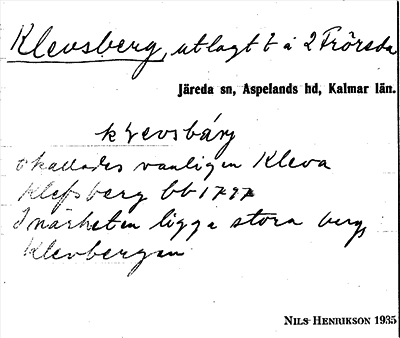 Klevsberg, utlagt t å 2 Frörsda
Järeda sn, Aspelands hd, Kalmar län.
klevsbärj
kallades vanligen Kleva
Klefsberg bb 1797
I närheten ligga stora berg
Klevbergen
NILS HENRIKSON 1935